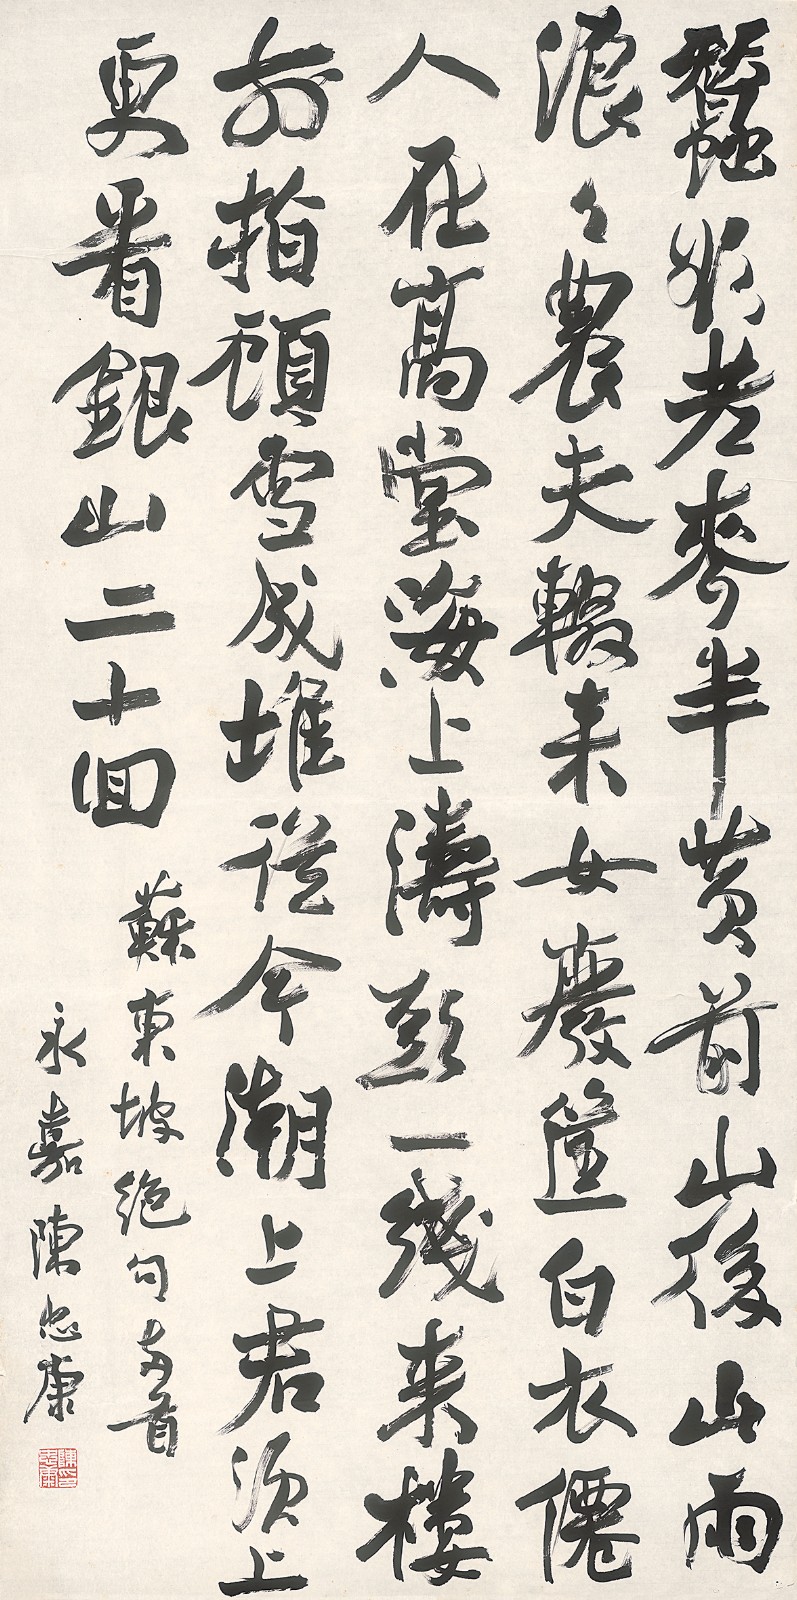 蠶欲老麥半黄前山後山雨
浪々農夫輟耒女廢筐白衣僊
人在高堂海上濤頭一綫来樓
前指顧雪成堆從今潮上君須上
更看銀山二十回
蘇東坡絶句兩首
永嘉陳忠康
陳印忠康